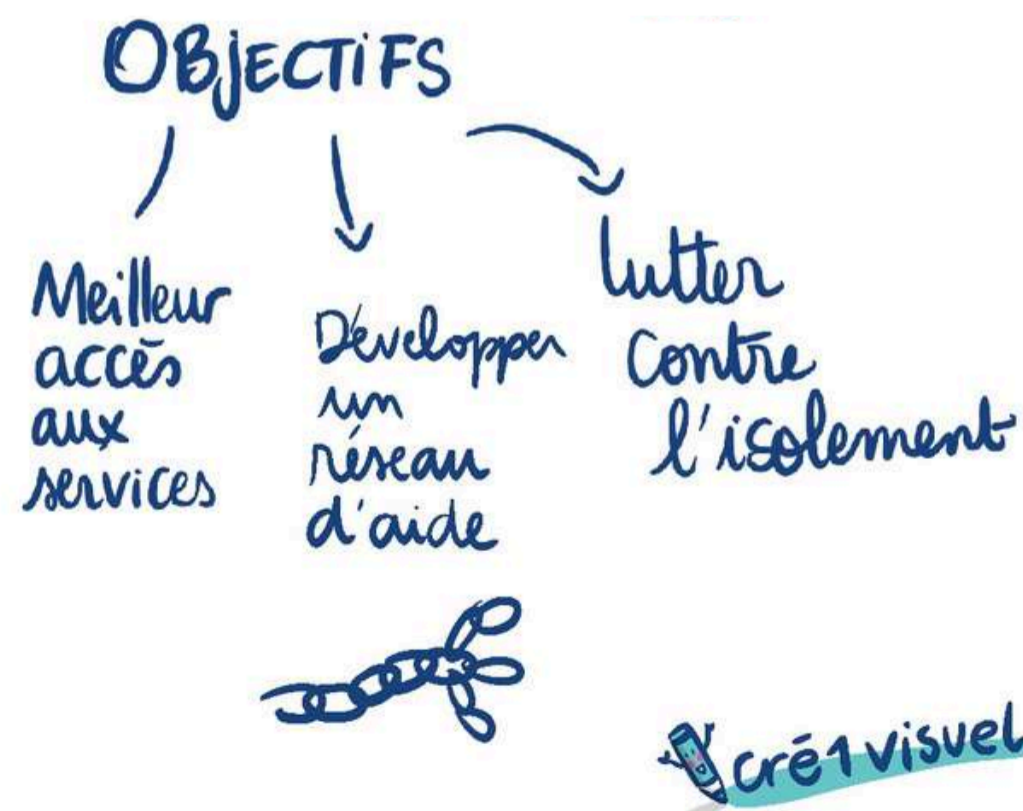 OBJECTIFS
Meilleur
accès
aux
services
Développer
un
réseau
d'aide
lutter
contre
l'isolement
cré1visuel